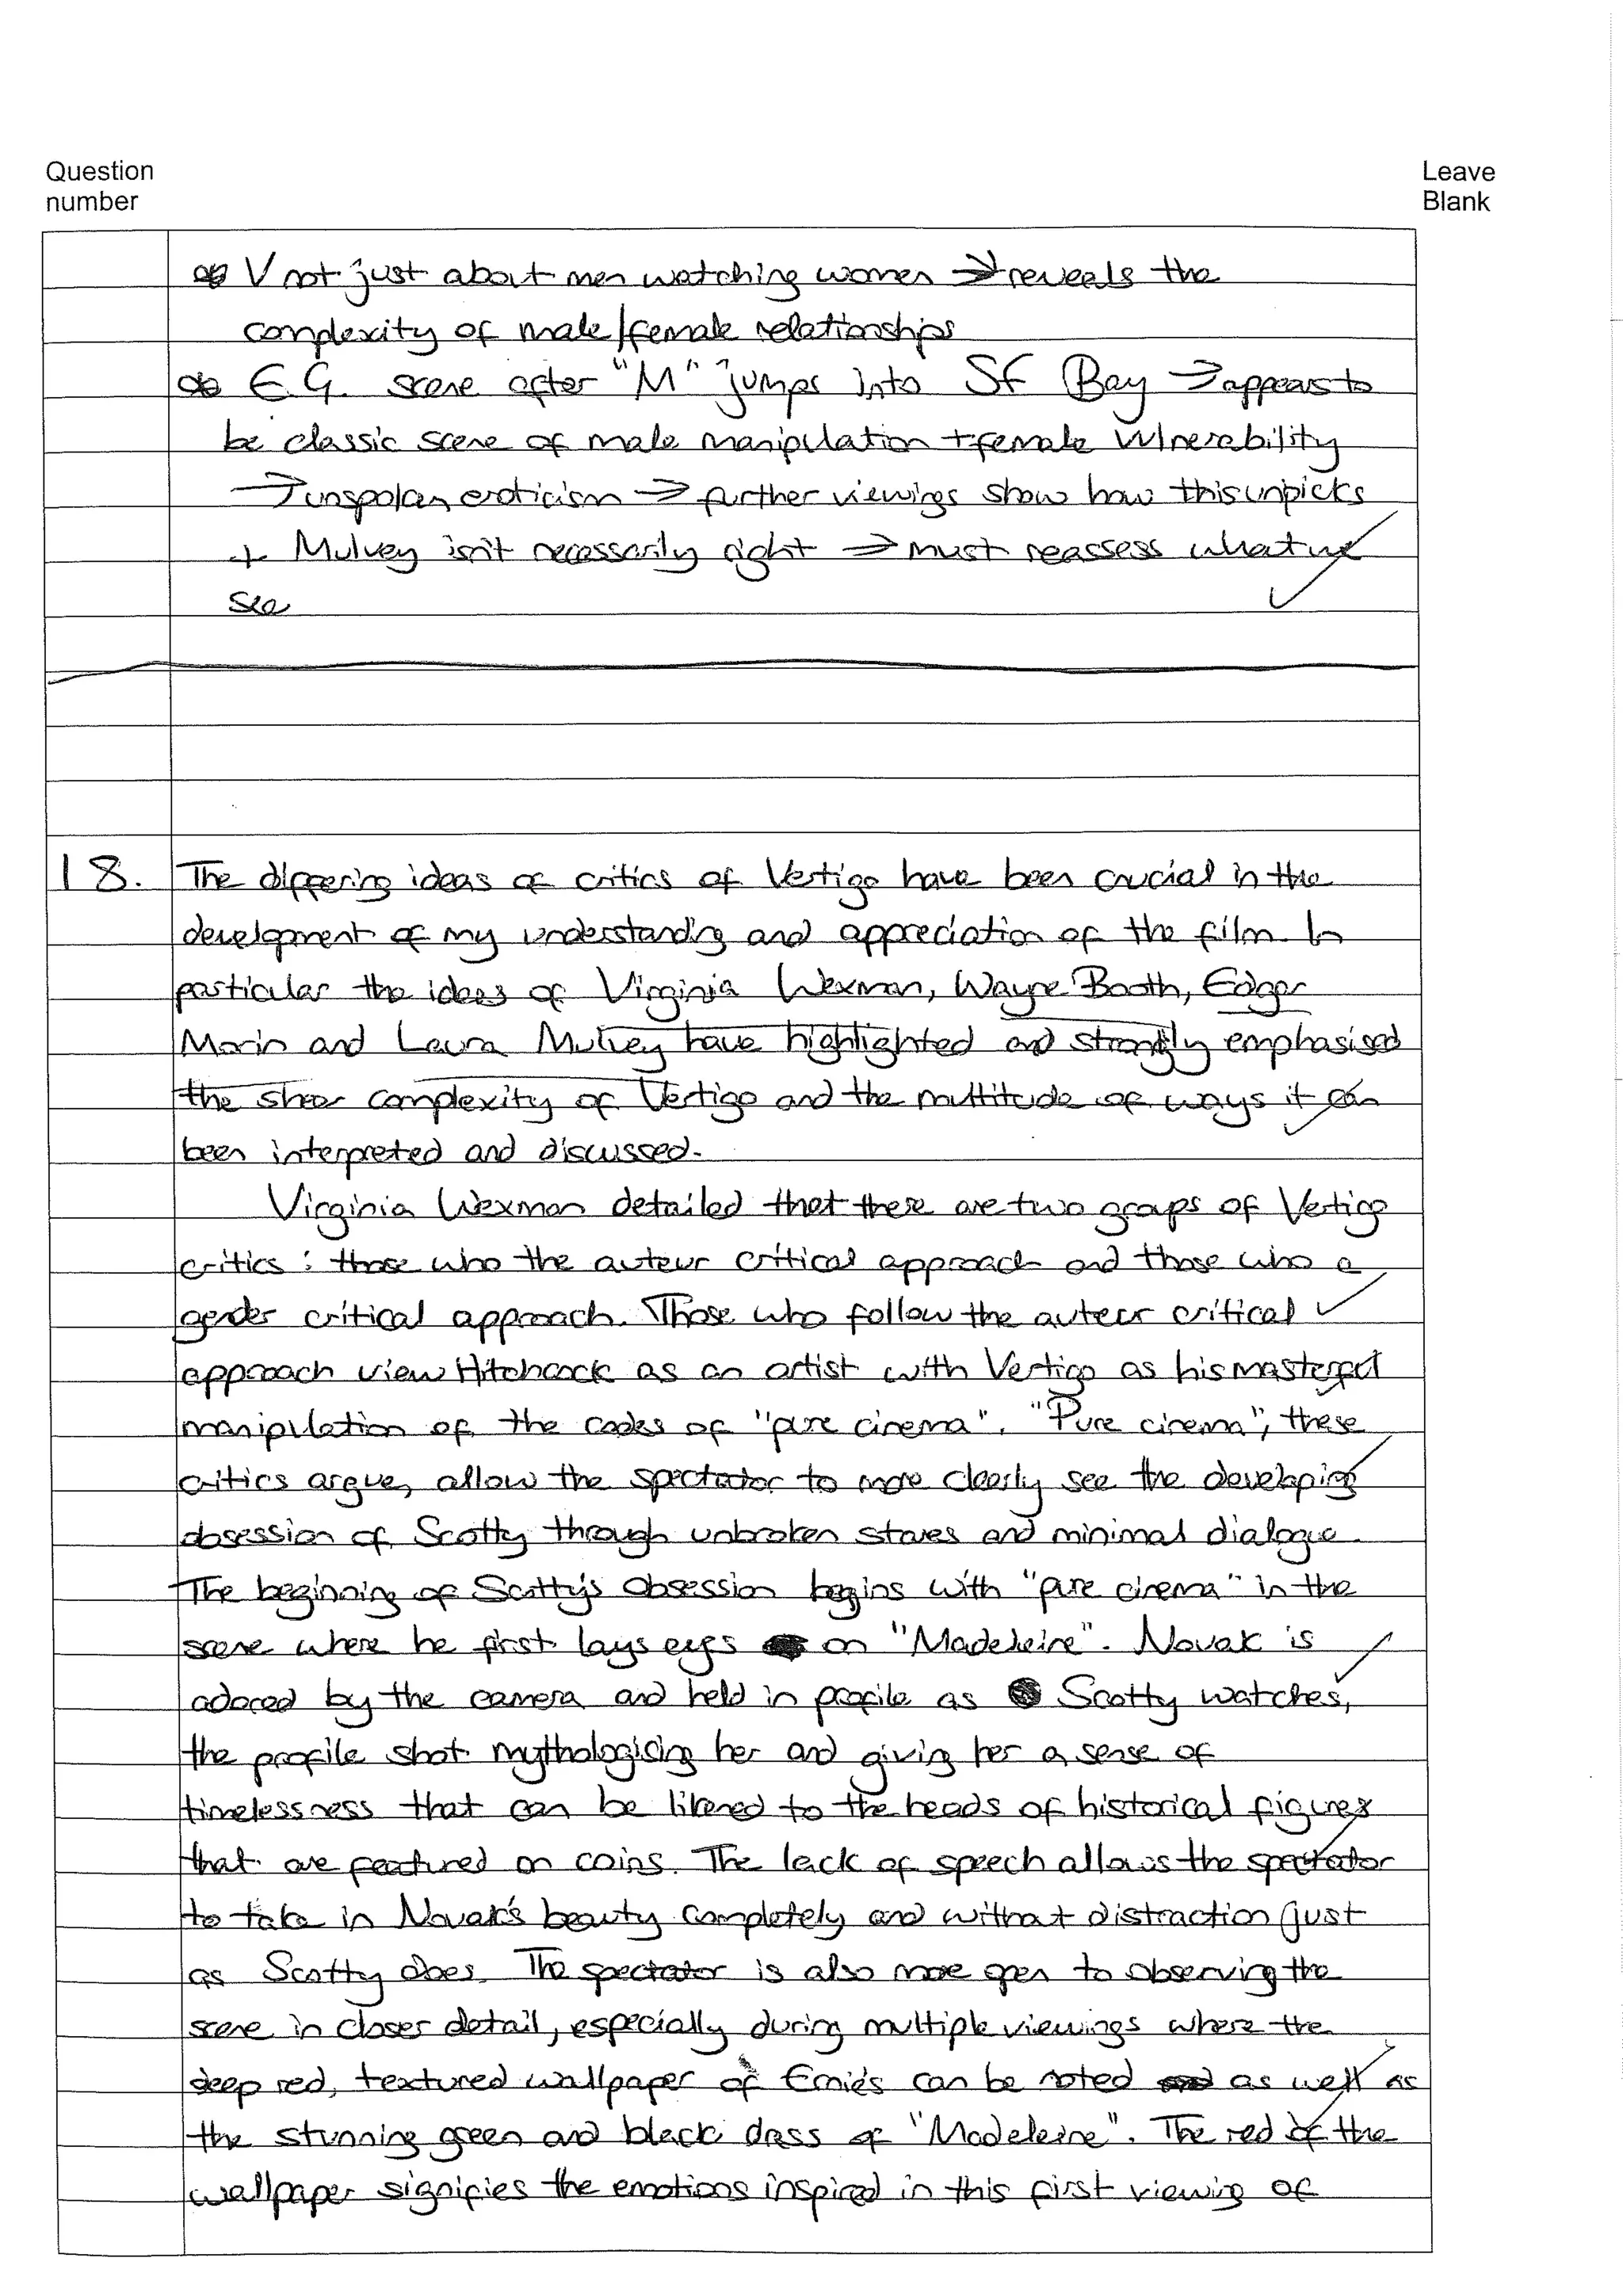 Question number
Leave Blank
V not just about men watching women → reveals the
complexity of male/female relationships
E.G. scene after "M" jumps into SF Bay → appears to
be classic scene of male manipulation + female vulnerability
→ unspoken eroticism → further viewings show how this unpicks
+ Mulvey isn't necessarily right → must reassess what we
see
18. The differing ideas of critics of Vertigo have been crucial in the
development of my understanding and appreciation of the film. In
particular the ideas of Virginia Wexman, Wayne Booth, Edgar
Morin and Laura Mulvey have highlighted and strongly emphasised
the shear complexity of Vertigo and the multitude of ways it can
been interpreted and discussed.
Virginia Wexman detailed that there are two groups of Vertigo
critics : those who the auteur critical approach and those who a
gender critical approach. Those who follow the auteur critical
approach view Hitchcock as an artist with Vertigo as his masterful
manipulation of the codes of "pure cinema". "Pure cinema", these
critics argue, allow the spectator to more clearly see the developing
obsession of Scotty through unbroken stares and minimal dialogue.
The beginning of Scotty's obsession begins with "pure cinema" in the
scene where he first lays eyes on "Madeleine". Novak is
adored by the camera and held in profile as Scotty watches,
the profile shot mythologising her and giving her a sense of
timelessness that can be likened to the heads of historical figures
that are featured on coins. The lack of speech allows the spectator
to take in Novak's beauty completely and without distraction just
as Scotty does. The spectator is also more open to observing the
scene in closer detail, especially during multiple viewings where the
deep red, textured wallpaper of Ernie's can be noted as well as
the stunning green and black dress of "Madeleine". The red of the
wallpaper signifies the emotions inspired in this first viewing of